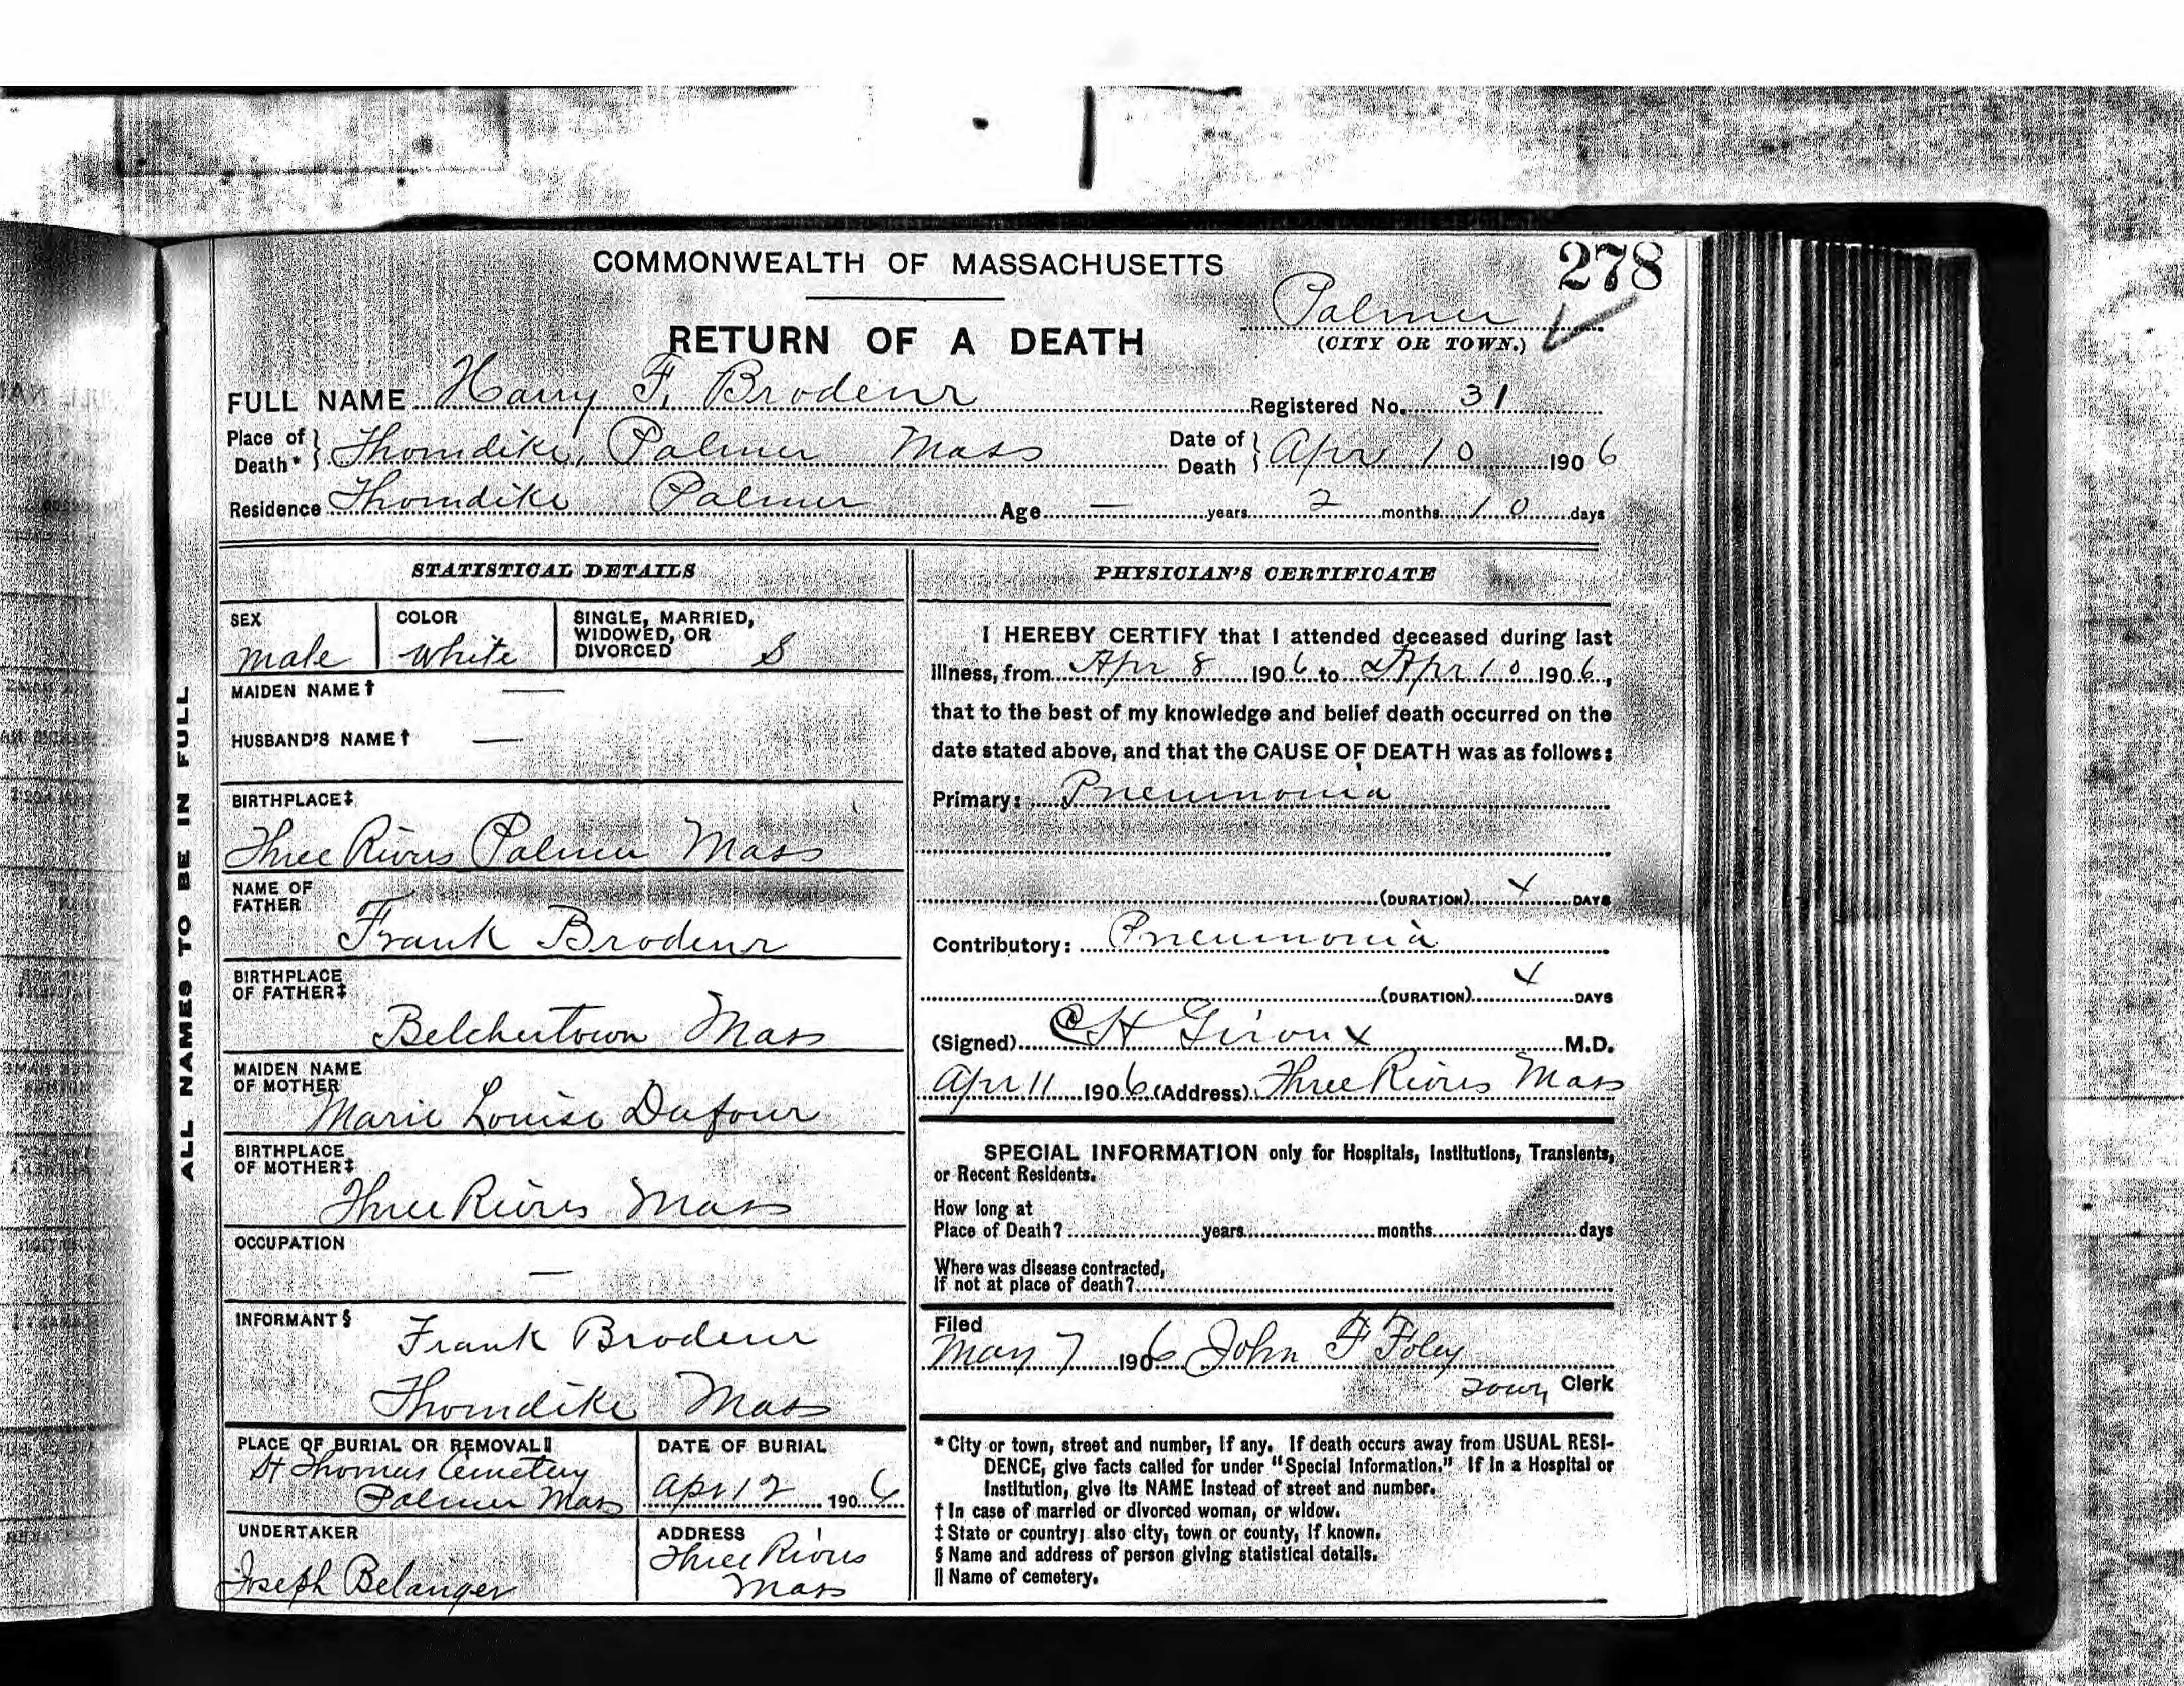 278
COMMONWEALTH OF MASSACHUSETTS
Palmer
RETURN OF A DEATH
(CITY OR TOWN.)
FULL NAME Harry F. Brodeur Registered No. 31
Place of Death* } Thorndike, Palmer Mass Date of Death } Apr 10 1906
Residence Thorndike Palmer Age — years 2 months 10 days
ALL NAMES TO BE IN FULL
STATISTICAL DETAILS
SEX COLOR SINGLE, MARRIED,
WIDOWED, OR
DIVORCED
male white S
MAIDEN NAME† —
HUSBAND'S NAME† —
BIRTHPLACE‡
Three Rivers Palmer Mass
NAME OF
FATHER
Frank Brodeur
BIRTHPLACE
OF FATHER‡
Belchertown Mass
MAIDEN NAME
OF MOTHER
Marie Louise Dufour
BIRTHPLACE
OF MOTHER‡
Three Rivers Mass
OCCUPATION
—
INFORMANT§
Frank Brodeur
Thorndike Mass
PLACE OF BURIAL OR REMOVAL||
St Thomas Cemetery
Palmer Mass
DATE OF BURIAL
Apr 12 1906
UNDERTAKER
Joseph Belanger
ADDRESS
Three Rivers
Mass
PHYSICIAN'S CERTIFICATE
I HEREBY CERTIFY that I attended deceased during last
illness, from Apr 8 1906 to Apr 10 1906,
that to the best of my knowledge and belief death occurred on the
date stated above, and that the CAUSE OF DEATH was as follows:
Primary: Pneumonia
(DURATION) 4 DAYS
Contributory: Pneumonia
(DURATION) 4 DAYS
(Signed) C H Giroux M.D.
Apr 11 1906 (Address) Three Rivers Mass
SPECIAL INFORMATION only for Hospitals, Institutions, Transients,
or Recent Residents.
How long at
Place of Death? years months days
Where was disease contracted,
If not at place of death?
Filed
May 7 1906 John F Foley
Town Clerk
* City or town, street and number, if any. If death occurs away from USUAL RESI-
DENCE, give facts called for under "Special Information." If in a Hospital or
Institution, give its NAME instead of street and number.
† In case of married or divorced woman, or widow.
‡ State or country; also city, town or county, if known.
§ Name and address of person giving statistical details.
|| Name of cemetery.